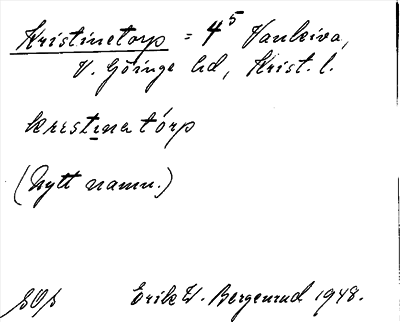 Kristinetorp = 4⁵ Vankiva,
V. Göinge hd, Krist. l.
krestinatórp
(Nytt namn.)
Erik W. Bergenrud 1948.